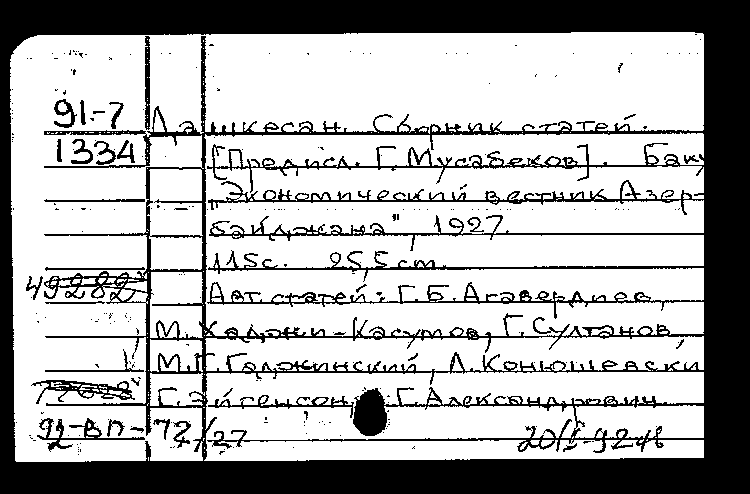 91-7 Дашкесан. Сборник статей.
1334 [Предисл. Г. Мусабеков]. Баку
„Экономический вестник Азер-
байджана", 1927.
115с. 25,5 см.
49282 Авт. статей: Г.Б. Агавердиев,
М. Хаджи-Касумов, Г. Султанов,
М.Г. Гаджинский, Л. Конюшевски
Г. Эйгенсон, Г. Александрович.
92-ВП-72/27